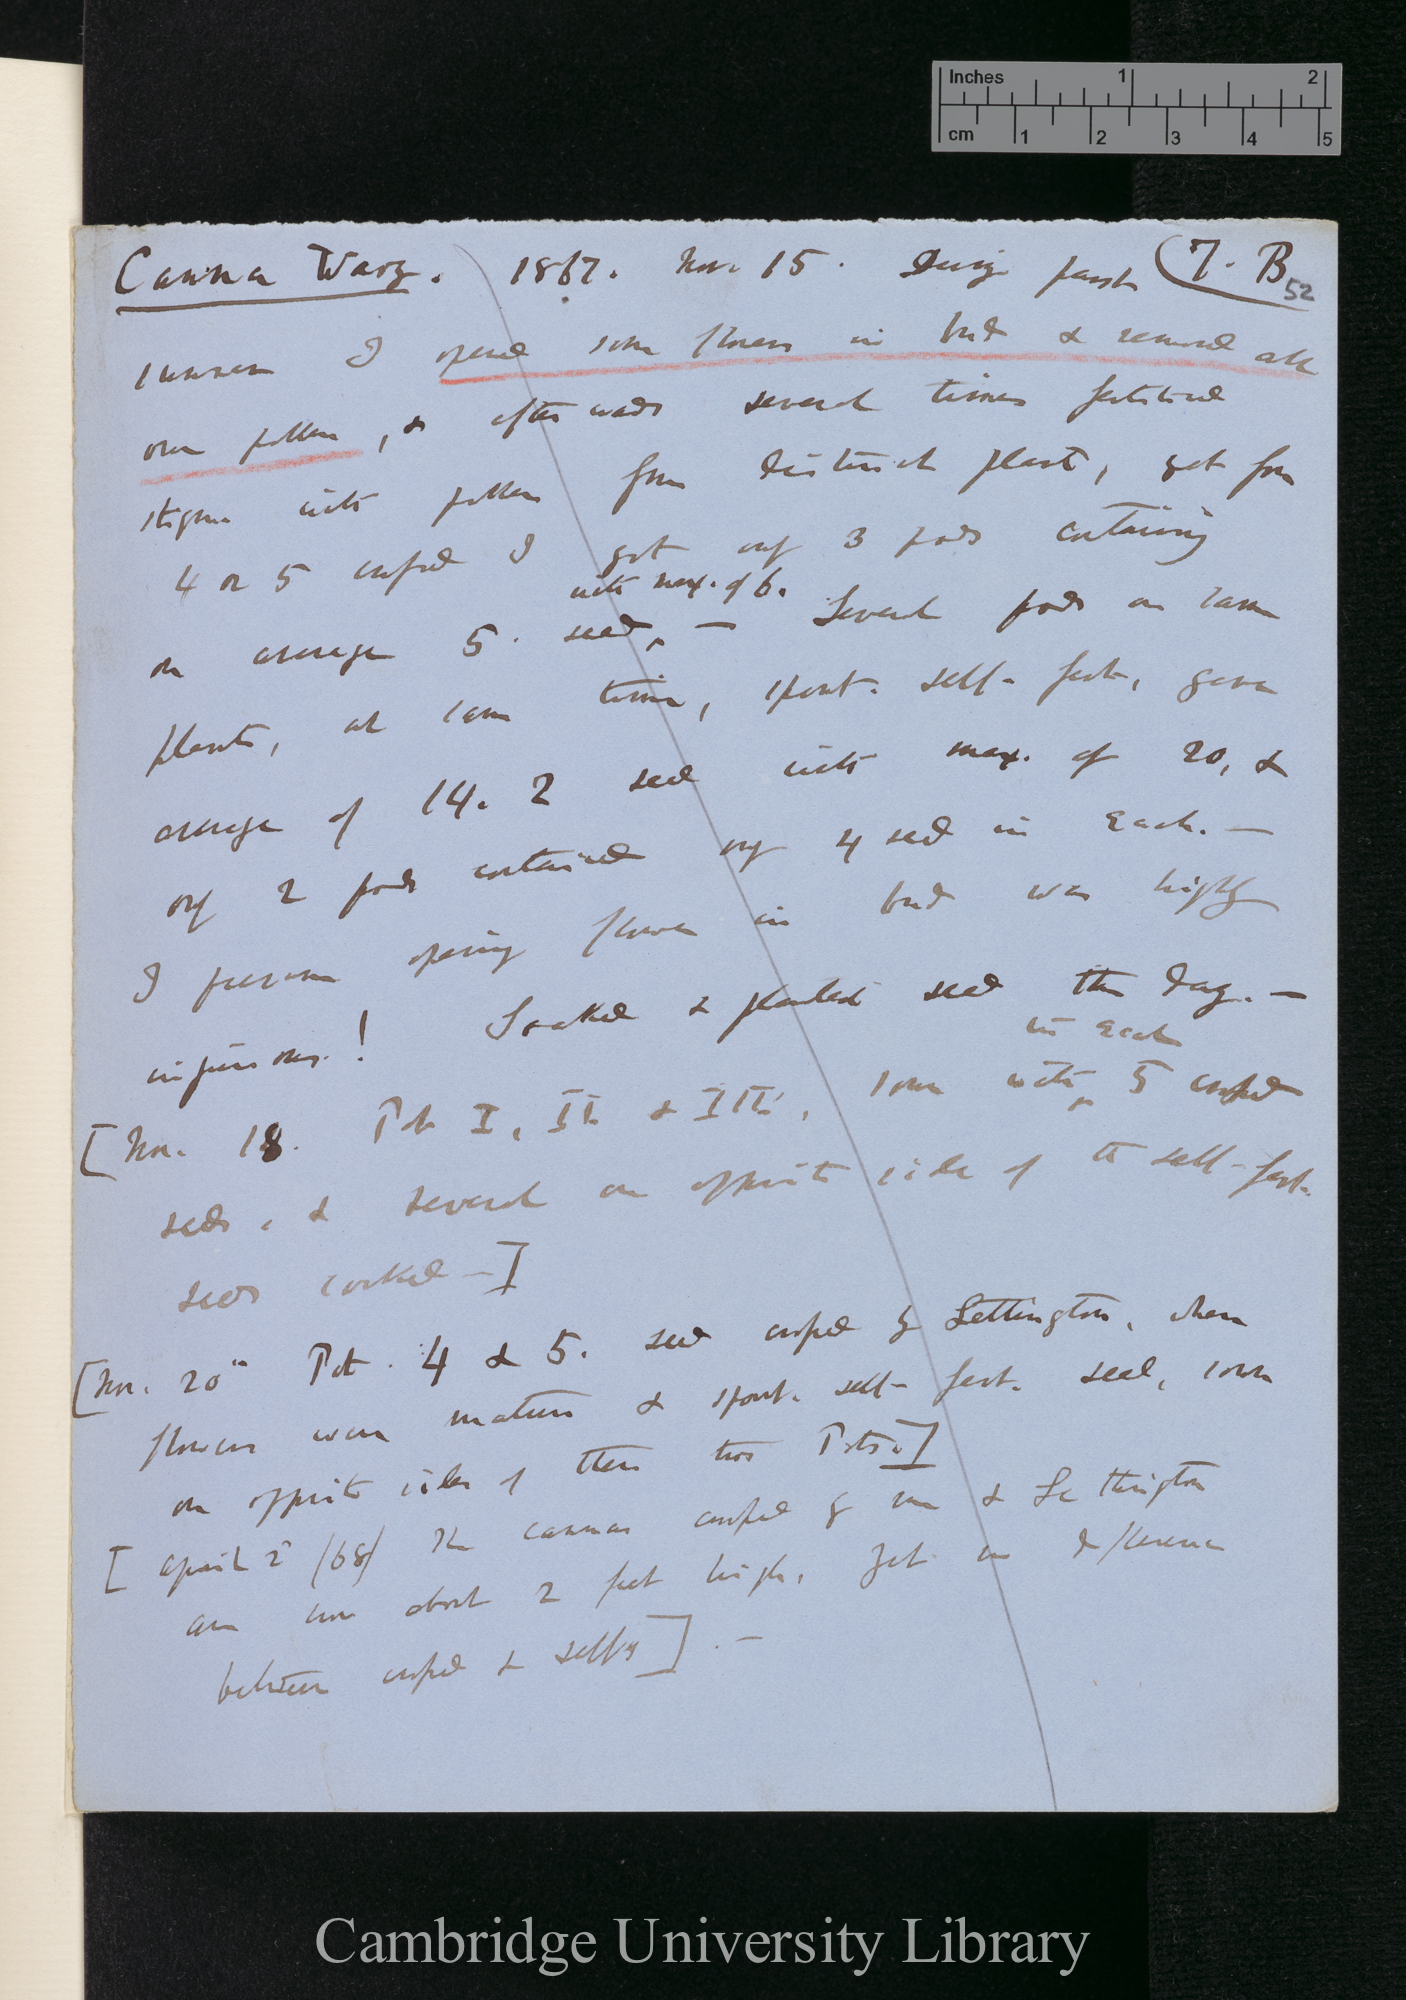 Inches 1 2
cm 1 2 3 4 5
Canna Warz. 1867. Nov. 15. During past (7. B
52
summer I opened some flowers in bud & removed all
own pollen, & afterwards several times fertilised
stigma with pollen from distinct plant, yet from
4 or 5 crossed I got only 3 pods containing
with max. of 6.
on average 5. seed, — Several pods on same
plants, at same time, spont. self-fert, gave
average of 14. 2 seed with max. of 20, &
only 2 pods contained only 4 seed in each. —
I presume opening flower in bud was highly
injurious! Soaked & planted seed this day. —
in each
[Nov. 18. Pot I, II & III, sown with 5 crossed
seeds, & several on opposite side of the self-fert.
seeds soaked —]
[Nov. 20" Pot. 4 & 5. seed crossed by Lettington, when
flowers were mature & spont. self-fert. seed, sown
on opposite sides of these two Pots.]
[April 2d /68/ The cannas crossed by me & Lettington
are now about 2 feet high, yet no difference
between crossed & selfs]. —
Cambridge University Library